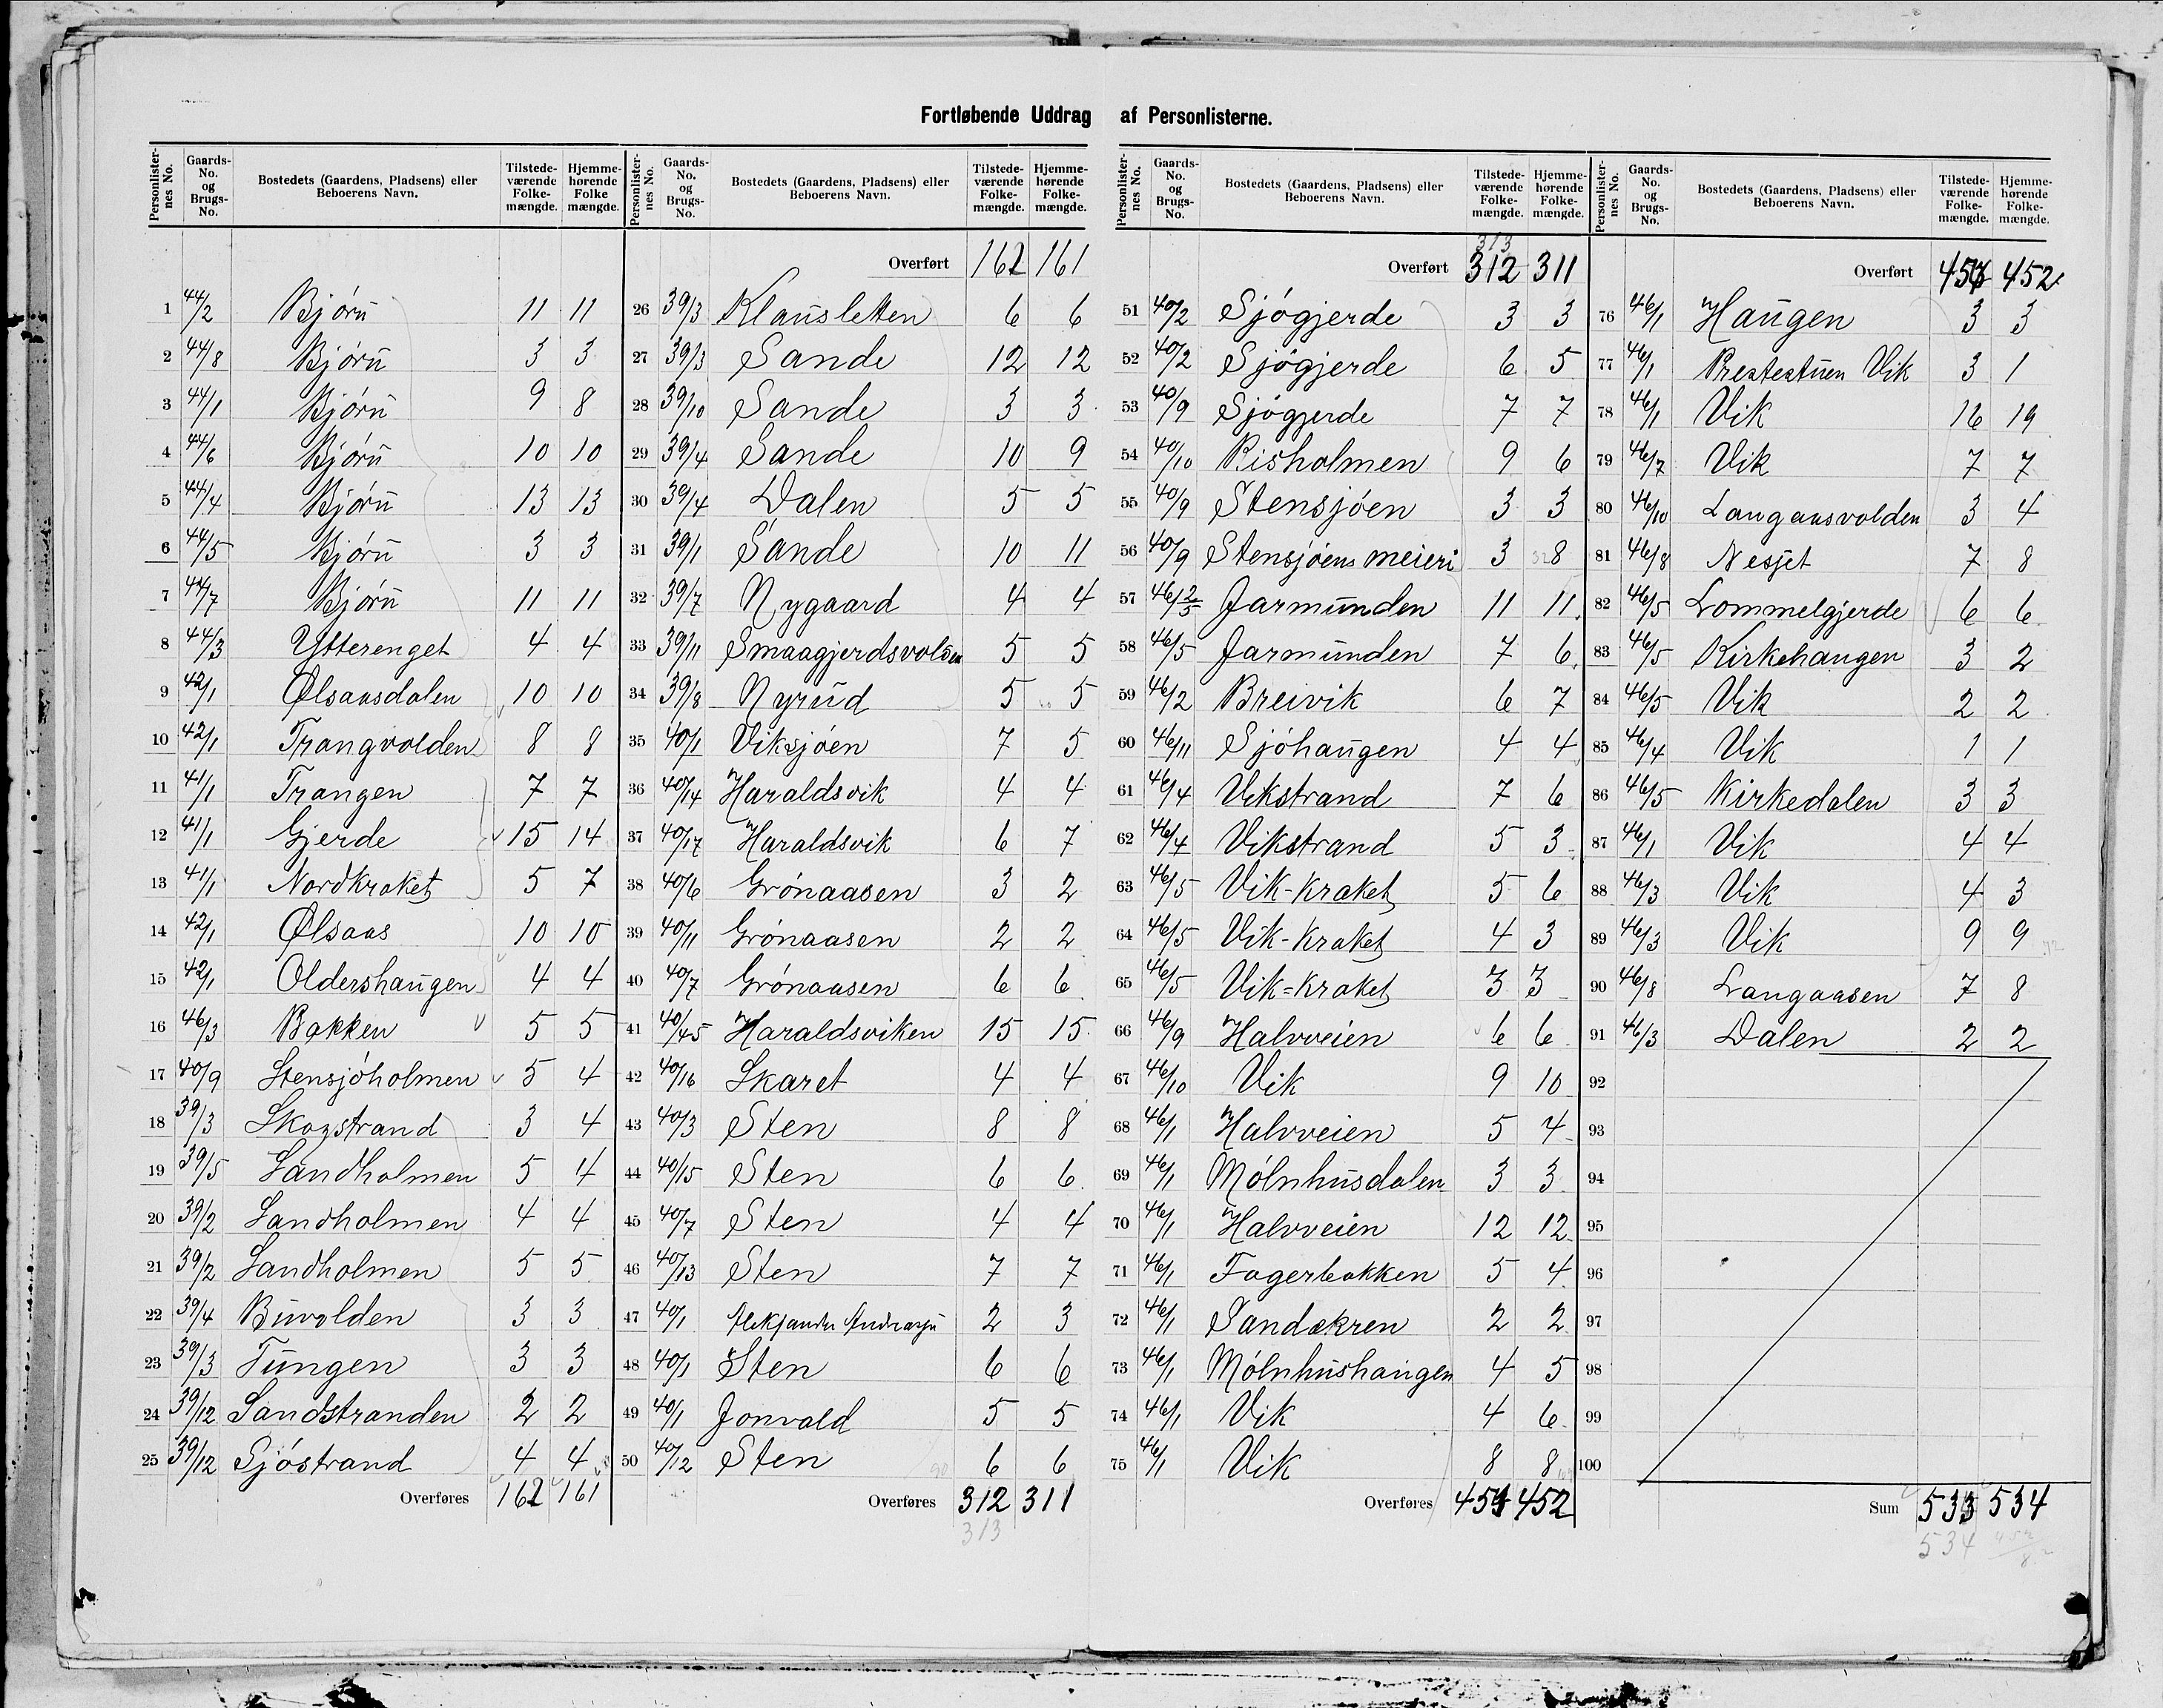 Fortløbende Uddrag af Personlisterne.
Personlisternes No. Gaards-No. og Brugs-No. Bostedets (Gaardens, Pladsens) eller Beboerens Navn. Tilstedeværende Folkemængde. Hjemmehørende Folkemængde.
1 44/2 Bjørn 11 11
2 44/8 Bjørn 3 3
3 44/1 Bjørn 9 8
4 44/6 Bjørn 10 10
5 44/4 Bjørn 13 13
6 44/5 Bjørn 3 3
7 44/7 Bjørn 11 11
8 44/3 Ytterenget 4 4
9 42/1 Ølsaasdalen 10 10
10 42/1 Trangvolden 8 8
11 41/1 Trangen 7 7
12 41/1 Gjerde 15 14
13 41/1 Nordkraket 5 7
14 42/1 Ølsaas 10 10
15 42/1 Oldershaugen 4 4
16 46/3 Bakken 5 5
17 40/9 Stensjøholmen 5 4
18 39/3 Skogstrand 3 4
19 39/5 Sandholmen 5 4
20 39/2 Sandholmen 4 4
21 39/2 Sandholmen 5 5
22 39/4 Buvolden 3 3
23 39/3 Tungen 3 3
24 39/12 Sandstranden 2 2
25 39/12 Sjøstrand 4 4
Overføres 162 161
Personlisternes No. Gaards-No. og Brugs-No. Bostedets (Gaardens, Pladsens) eller Beboerens Navn. Tilstedeværende Folkemængde. Hjemmehørende Folkemængde.
Overført 162 161
26 39/3 Klausletten 6 6
27 39/3 Sande 12 12
28 39/10 Sande 3 3
29 39/4 Sande 10 9
30 39/4 Dalen 5 5
31 39/1 Sande 10 11
32 39/7 Nygaard 4 4
33 39/11 Smaagjerdsvolden 5 5
34 39/8 Nyrud 5 5
35 40/1 Viksjøen 7 5
36 40/14 Haraldsvik 4 4
37 40/17 Haraldsvik 6 7
38 40/6 Grønaasen 3 2
39 40/11 Grønaasen 2 2
40 40/7 Grønaasen 6 6
41 40/45 Haraldsviken 15 15
42 40/16 Skaret 4 4
43 40/3 Sten 8 8
44 40/15 Sten 6 6
45 40/7 Sten 4 4
46 40/13 Sten 7 7
47 40/1 2 3
48 40/1 Sten 6 6
49 40/1 Jonvald 5 5
50 40/12 Sten 6 6
Overføres 312 311
313
Personlisternes No. Gaards-No. og Brugs-No. Bostedets (Gaardens, Pladsens) eller Beboerens Navn. Tilstedeværende Folkemængde. Hjemmehørende Folkemængde.
313
Overført 312 311
51 40/2 Sjøgjerde 3 3
52 40/2 Sjøgjerde 6 5
53 40/9 Sjøgjerde 7 7
54 40/10 Risholmen 9 6
55 40/9 Stensjøen 3 3
56 40/9 Stensjøens meieri 3 8
57 46/2/5 Jarmunden 11 11
58 46/5 Jarmunden 7 6
59 46/2 Breivik 6 7
60 46/11 Sjøhaugen 4 4
61 46/4 Vikstrand 7 6
62 46/4 Vikstrand 5 3
63 46/5 Vik-kraket 5 6
64 46/5 Vik-kraket 4 3
65 46/5 Vik=kraket 3 3
66 46/9 Halvveien 6 6
67 46/10 Vik 9 10
68 46/1 Halvveien 5 4
69 46/1 Mølnhusdalen 3 3
70 46/1 Halvveien 12 12
71 46/1 Fagerbakken 5 4
72 46/1 Sandakren 2 2
73 46/1 Mølnhushaugen 4 5
74 46/1 Vik 4 6
75 46/1 Vik 8 8
Overføres 452
Personlisternes No. Gaards-No. og Brugs-No. Bostedets (Gaardens, Pladsens) eller Beboerens Navn. Tilstedeværende Folkemængde. Hjemmehørende Folkemængde.
Overført 452
76 46/1 Haugen 3 3
77 46/1 Prestestuen Vik 3 1
78 46/1 Vik 16 19
79 46/7 Vik 7 7
80 46/10 Langaasvolden 3 4
81 46/8 Nesjet 7 8
82 46/5 Lommelgjerde 6 6
83 46/5 Kirkehaugen 3 2
84 46/5 Vik 2 2
85 46/4 Vik 1 1
86 46/5 Kirkedalen 3 3
87 46/1 Vik 4 4
88 46/3 Vik 4 3
89 46/3 Vik 9 9
90 46/8 Langaasen 7 8
91 46/3 Dalen 2 2
92
93
94
95
96
97
98
99
100
Sum 533 534
534